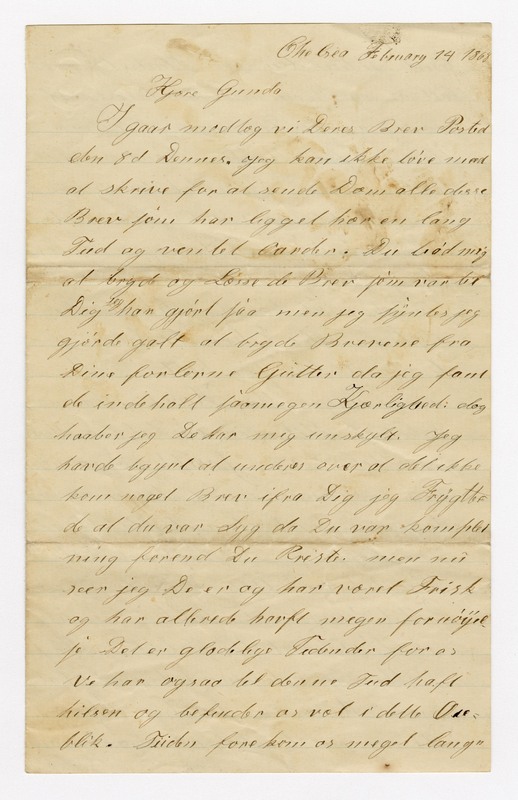 Chelsea February 14 18
Kjere Gunda
I gaar modtog vi Deres Brev Posted
den 8d Dennes. Jeg kan ikke love mad
at skrive for at sende Dem alle desse
Brev som har legget her en lang
Tid og ventet Earder. Du bød mig
at bryde og Læse de Brev som var til
Dig Jeg har gjort saa men jeg syntes jeg
gjorde galt at bryde Brevene fra
Dine forlorne Gutter da jeg fant
de indehalt saamegen Kjærlighed: dog
haaber jeg De har mig unskylt. Jeg
havde bgynt at undres over at det ikke
kom noget Brev ifra Dig jeg Frygte-
de at du var Syg da Du var komplet
ning forend Du Reiste. men nu
seer jeg De er og har været Frisk
og har allerede harft megen fornøyel-
se Det er gladelige Tidender for os
Ve har ogsaa til denne Tid haft
hilsen og befinder os vel i dette Øie=
blik. Tiiden forekom os meget lang"